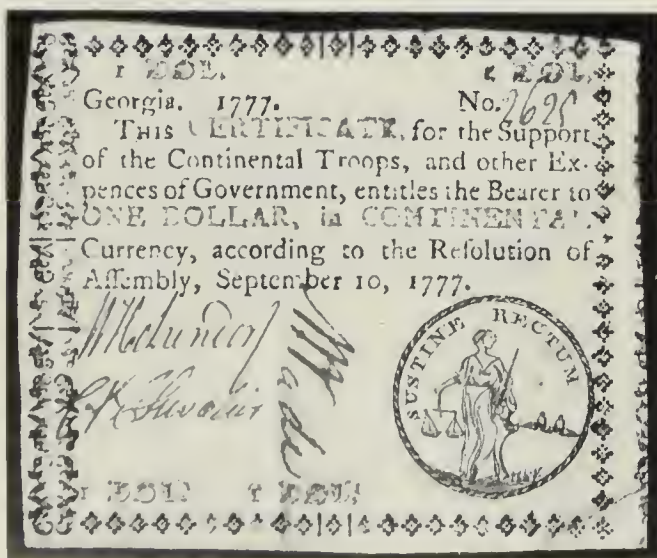 1 DOL. 1 DOL.
Georgia. 1777. No. 2625
THIS CERTIFICATE, for the Support
of the Continental Troops, and other Ex-
pences of Government, entitles the Bearer to
ONE DOLLAR, in CONTINENTAL
Currency, according to the Resolution of
Assembly, September 10, 1777.
Wade
SUSTINE RECTUM
1 DOL. 1 DOL.